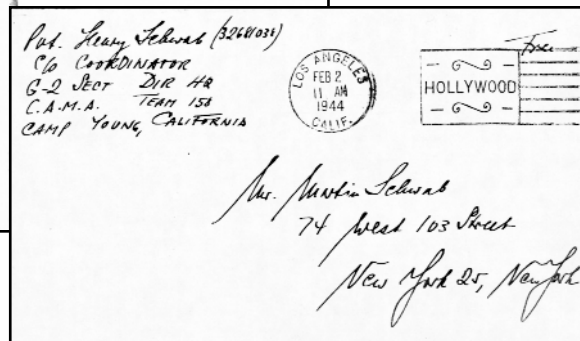 Pvt. Henry Schwab (32681038)
C/O COORDINATOR
G-2 SECT DIR HQ
C.A.M.A. TEAM 15A
CAMP YOUNG, CALIFORNIA
Free
LOS ANGELES
FEB 2
11 AM
1944
CALIF.
HOLLYWOOD
Mr. Martin Schwab
74 West 103 Street
New York 25, New York